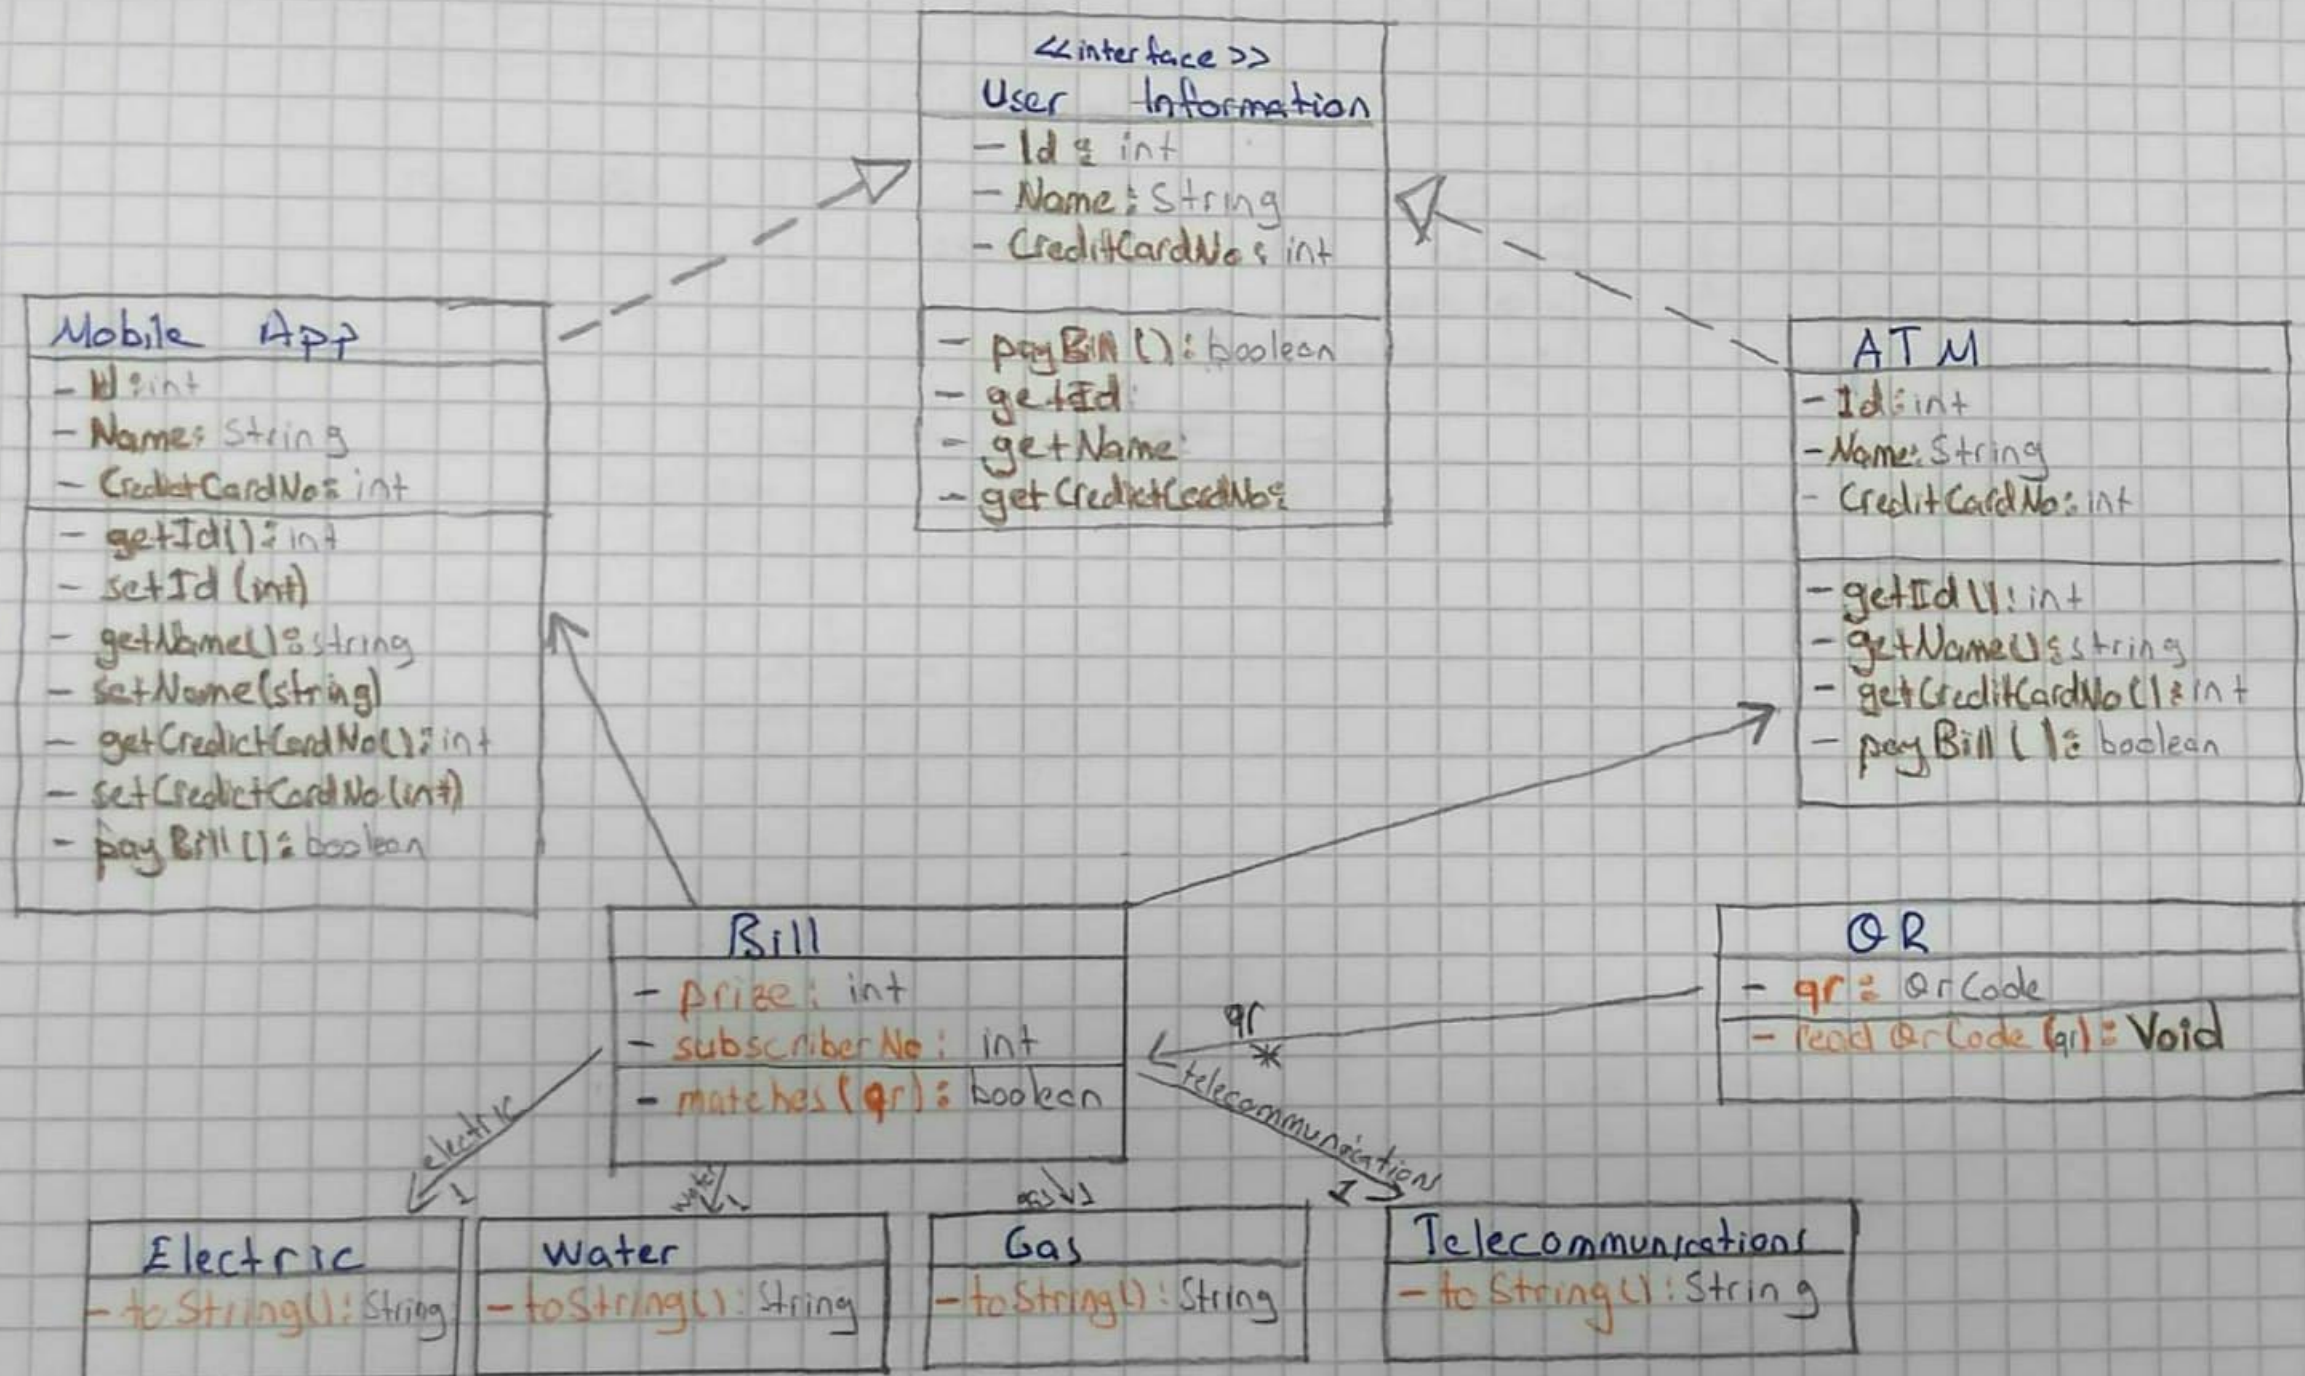 <<interface>>
User Information
- Id : int
- Name : String
- CreditCardNo : int
- payBill () : boolean
- getId :
- getName :
- getCredictCardNo :
Mobile App
- Id : int
- Name : String
- CredictCardNo : int
- getId() : int
- setId (int)
- getName() : string
- setName(string)
- getCredictCardNo() : int
- setCredictCardNo(int)
- payBill () : boolean
ATM
- Id : int
- Name : String
- CreditCardNo : int
- getId() : int
- getName() : string
- getCreditCardNo() : int
- payBill ( ) : boolean
Bill
- prize : int
- subscriberNo : int
- matches (qr) : boolean
QR
- qr : QrCode
- read QrCode (qr) : Void
qr
*
electric
1
water
1
gas
1
telecommunication
1
Electric
- toString() : String
Water
- toString() : String
Gas
- toString() : String
Telecommunications
- toString() : String